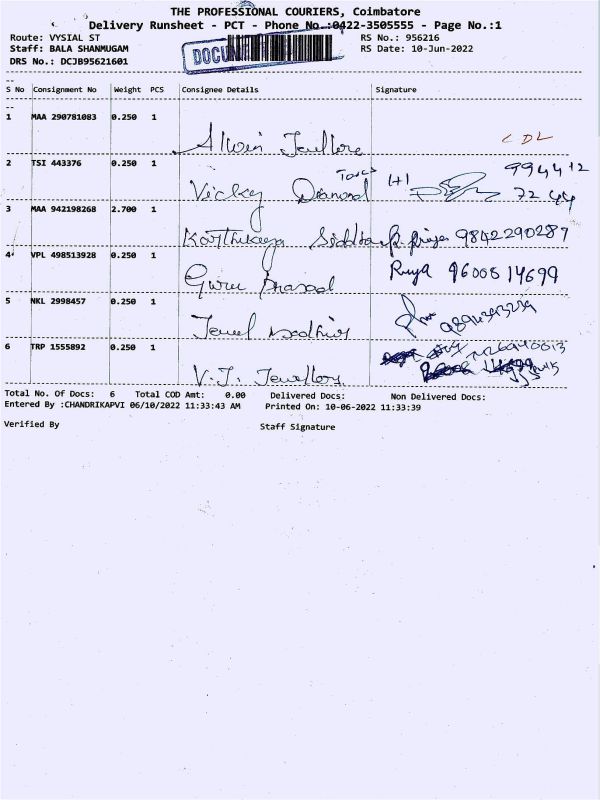 THE PROFESSIONAL COURIERS, Coimbatore
Delivery Runsheet - PCT - Phone No.:0422-3505555 - Page No.:1
Route: VYSIAL ST RS No.: 956216
Staff: BALA SHANMUGAM RS Date: 10-Jun-2022
DRS No.: DCJB95621601
DOCU
S No Consignment No Weight PCS Consignee Details Signature
1 MAA 290781083 0.250 1
Alwin Jewllers CDL
2 TSI 443376 0.250 1 994412
Vicky Diamond 1+1 7244
3 MAA 942198268 2.700 1
Karthikeya 9842290287
4 VPL 498513928 0.250 1
Guru Prasad 9600814699
5 NKL 2998457 0.250 1
Jewel
6 TRP 1555892 0.250 1
V.J. Jewellory
Total No. Of Docs: 6 Total COD Amt: 0.00 Delivered Docs: Non Delivered Docs:
Entered By :CHANDRIKAPVI 06/10/2022 11:33:43 AM Printed On: 10-06-2022 11:33:39
Verified By Staff Signature